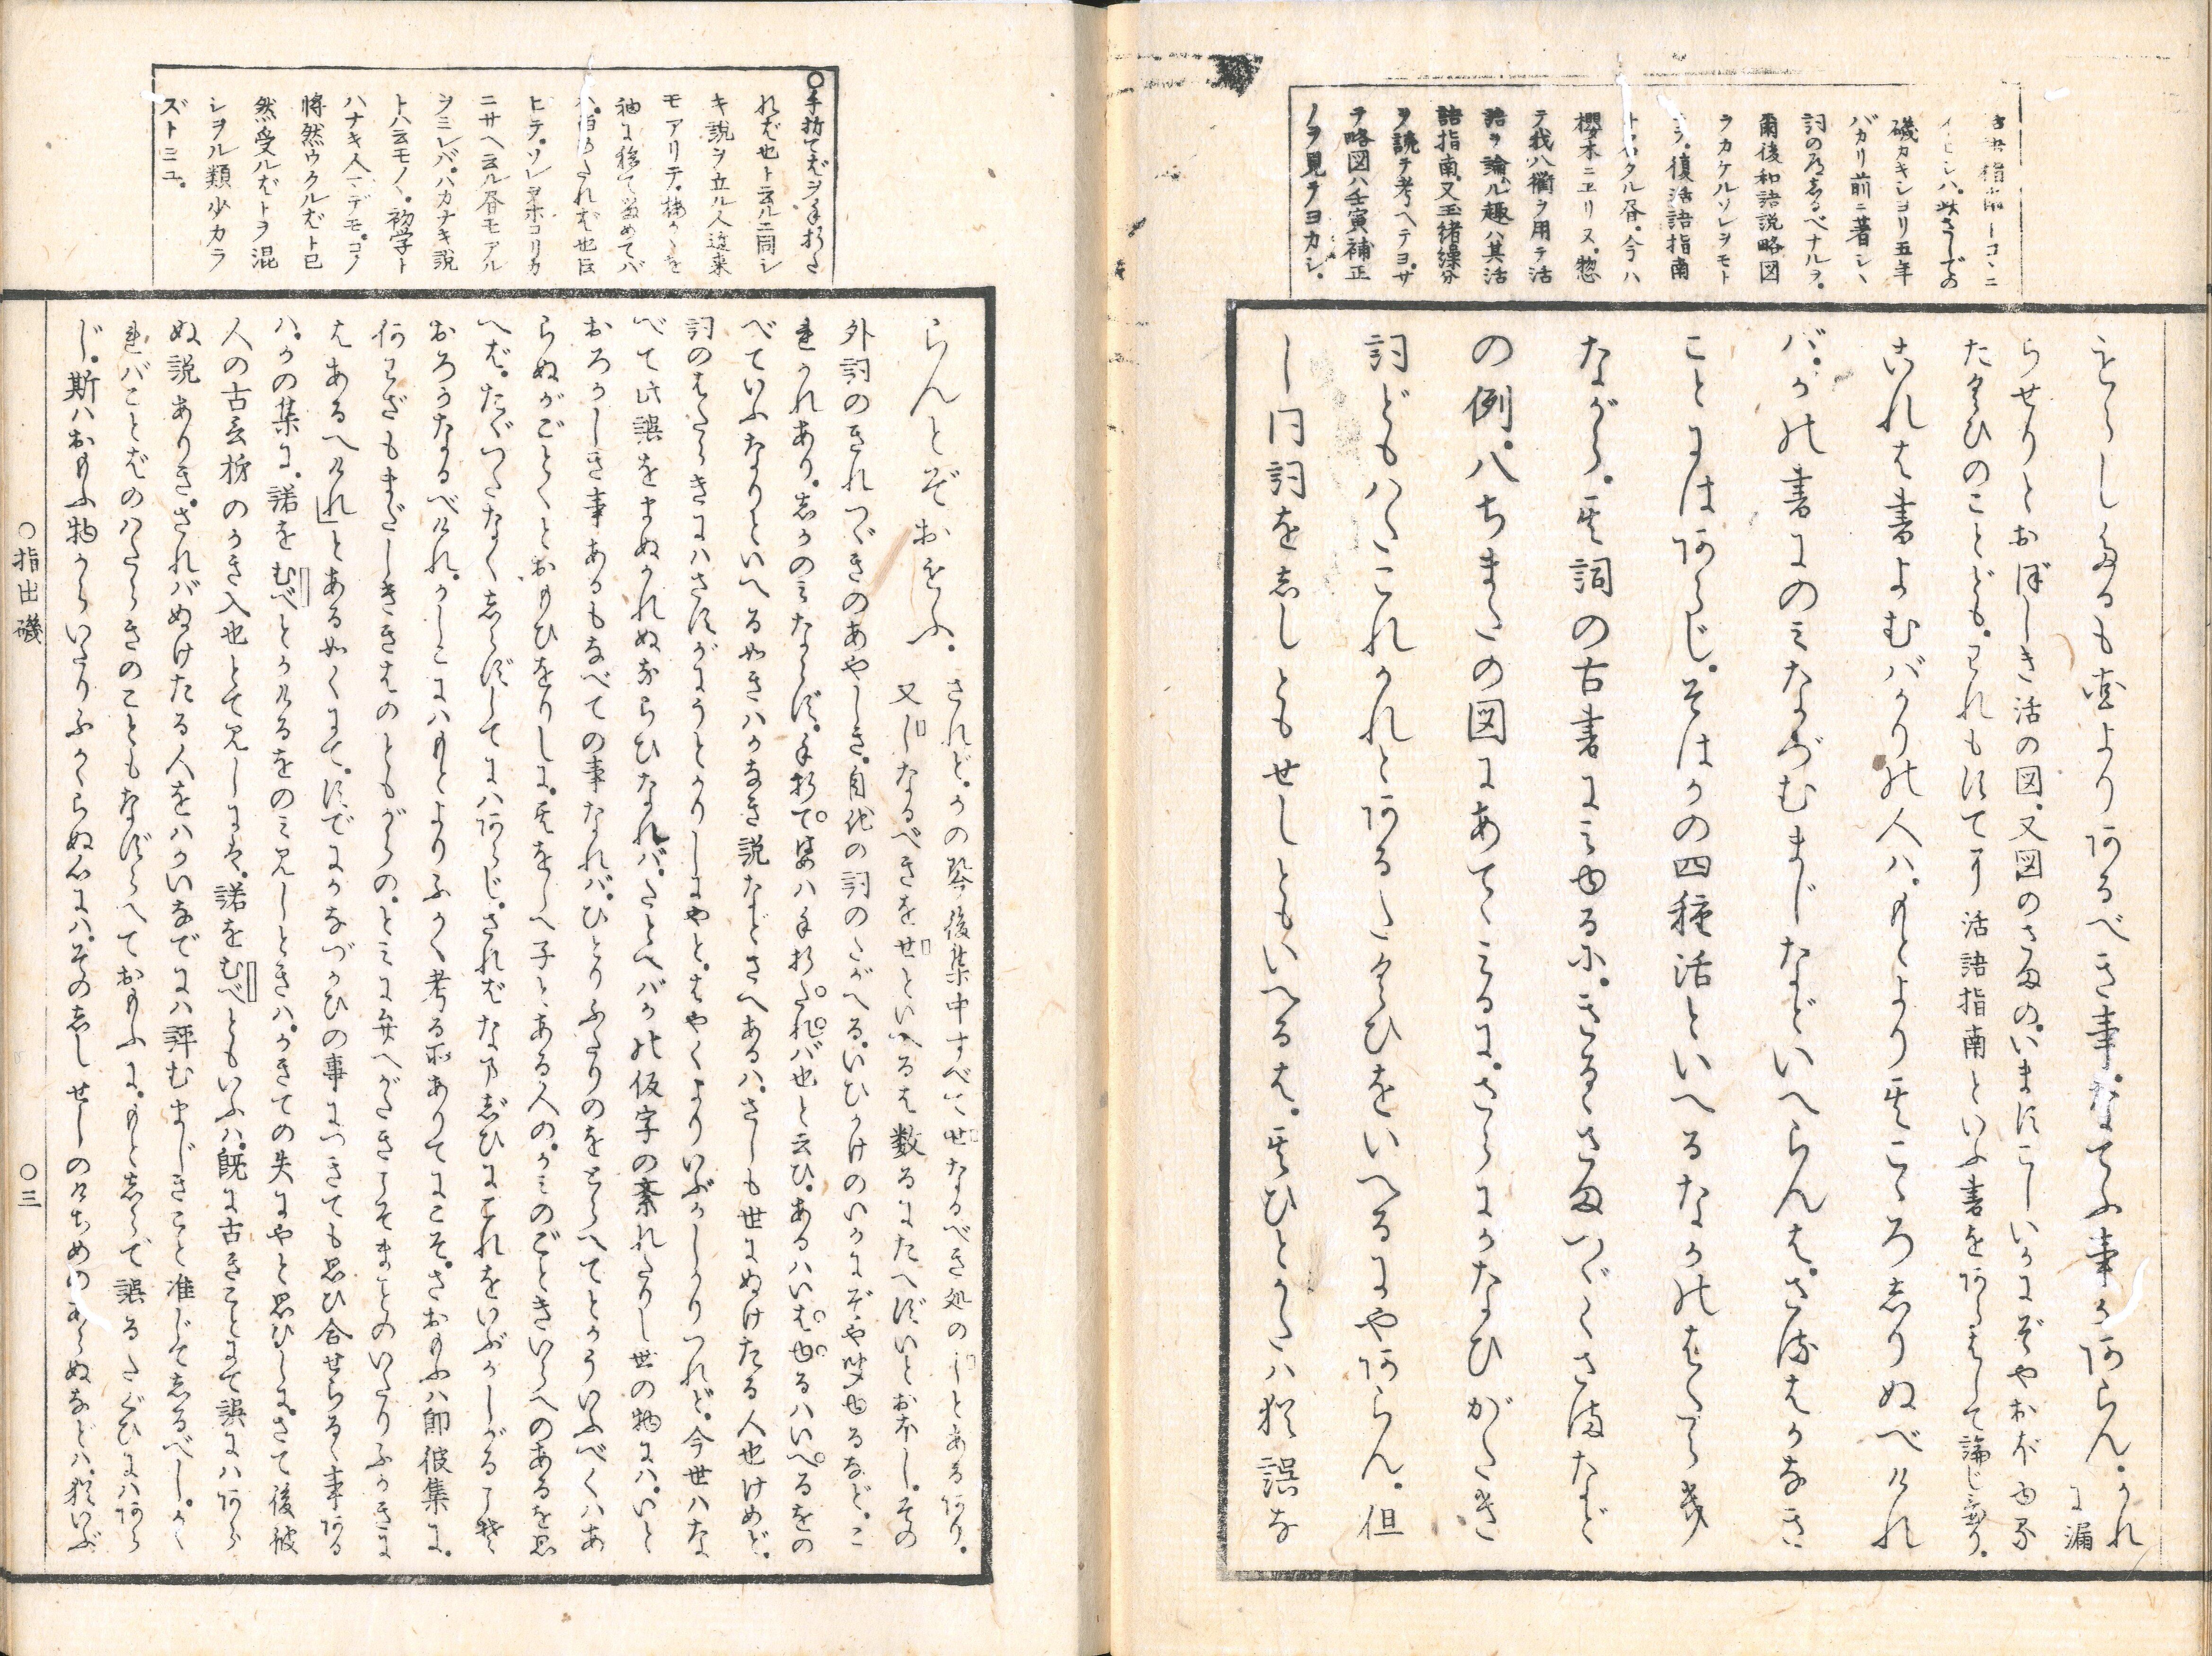 磯カキシヨリ五年
バカリ前ニ著シヽ
詞のみちしるべナルヲ。
爾後和語説略図
ヲカケルソレヲモト
復活語指南
櫻木ニエリヌ。惣
テ我八衢ヲ用テ活
語ヲ論ル趣ハ其活
語指南。又玉緒繰分
ヲ読テ考ヘテヨ。サ
テ略図ハ壬寅補正
ノヲ見テヨカシ。
をらし餘るも壺より阿るべき事なてふ事か阿らん。かれ
に漏
らせりとおぼしき活の図。又図のさまの。いますこしいかにぞやおぼゆる
たぐひのことども。われもはて可活語指南といふ書を阿らはして論じ
これは書よむばかりの人ハ。もとより其こゝろしりぬべけれ
バ。かの書にのミなづむまじなどいへらんは。さるはかなき
ことには阿らじ。そはかの四種活といへるなかのはたらき
ながら。其詞の古書にミゆるに。きるゝさまつゞくさまなど
の例。八ちまたの図にあてゝミるに。さらにかなひがたき
詞どもハたこれかれと阿るたぐひをいへるにや阿らん。但
し同詞をしともせしともいへるは。其ひとかたハ猶誤な
○手折てばヲ手折た
ればや也ト云ルニ同シ
キ説ヲ立ル人近来
モアリテ。梅がゝを
袖に移して留めてバ
ヒテ。ソレヲホコリカ
ニサヘ云ル昏モアル
ヲミレバ。ハカナキ説
トハ云モノヽ。初学ト
ハナキ人マデモ。コノ
将然ウクルばト已
然受ルばトヲ混
シヲル類少カラ
ズトミユ。
らんとぞおもふ。されど。かの琴後集中すべてせなるべき処のしとある阿り。
又しなるべきをせといへるは数るにたへずいとおほし。その
外詞のきれつゞきのあやしき。自他の詞のたがへる。いひかけのいかにぞや聞ゆるなど。こ
れかれあり。しかのミならず。手折てばハ手折たれバ也と云ひ。あるハいはゆるハいへるをの
べていふなりといへる如きハかなき説などさへあるハ。さしも世にぬけたる人也けめど。
詞のはたらきにハさばかりうとかりしにやと。はやくよりいぶかしかりつれど。今世ハな
べて此誤をまぬかれぬならひなれバ。たとへバかの仮字の紊れたりし世の物にハ。いと
おろかしき事あるもなべての事なれバ。ひとりふたりのをとらへてとかういふべくハあ
らぬがごとくとおもひをりしに。其をしへ子とある人の。かミのごときいらへのあるを思
へば。たゞつたなくしらずしてにハ阿らじ。さればなまじひにこれをいぶかしがるは我
おろかなるべけれ。かしこにハもとよりふかく考る所ありてにこそ。さおもふハ即彼集に。
何わざもまだしききはのともがらの。とミに弁へがたきこそまことのいたりふかきに
はあるへけれ」とある如くにて。すでにかなづかひの事につきても思ひ合せらるゝ事阿る
ハ。かの集に。諾をむべとかけるをのミ見しときハ。かきての失にやと思ひしに。さて後彼
人の古言梯のかき入也とて見しにも。諾をむべともいふハ。既に古きことにて誤にハ阿ら
ぬ説ありき。されバぬけたる人をハかいなでにハ評むまじきこと准じてしるべし。かく
れバことばのはたらきのこともなずらへておもふに。もとしらで誤るたぐひにハ阿ら
じ。斯ハおもふ物からいたりふかゝらぬ心にハ。そのしせしのけぢめのあらぬなどハ。猶いぶ
○指出磯
○三